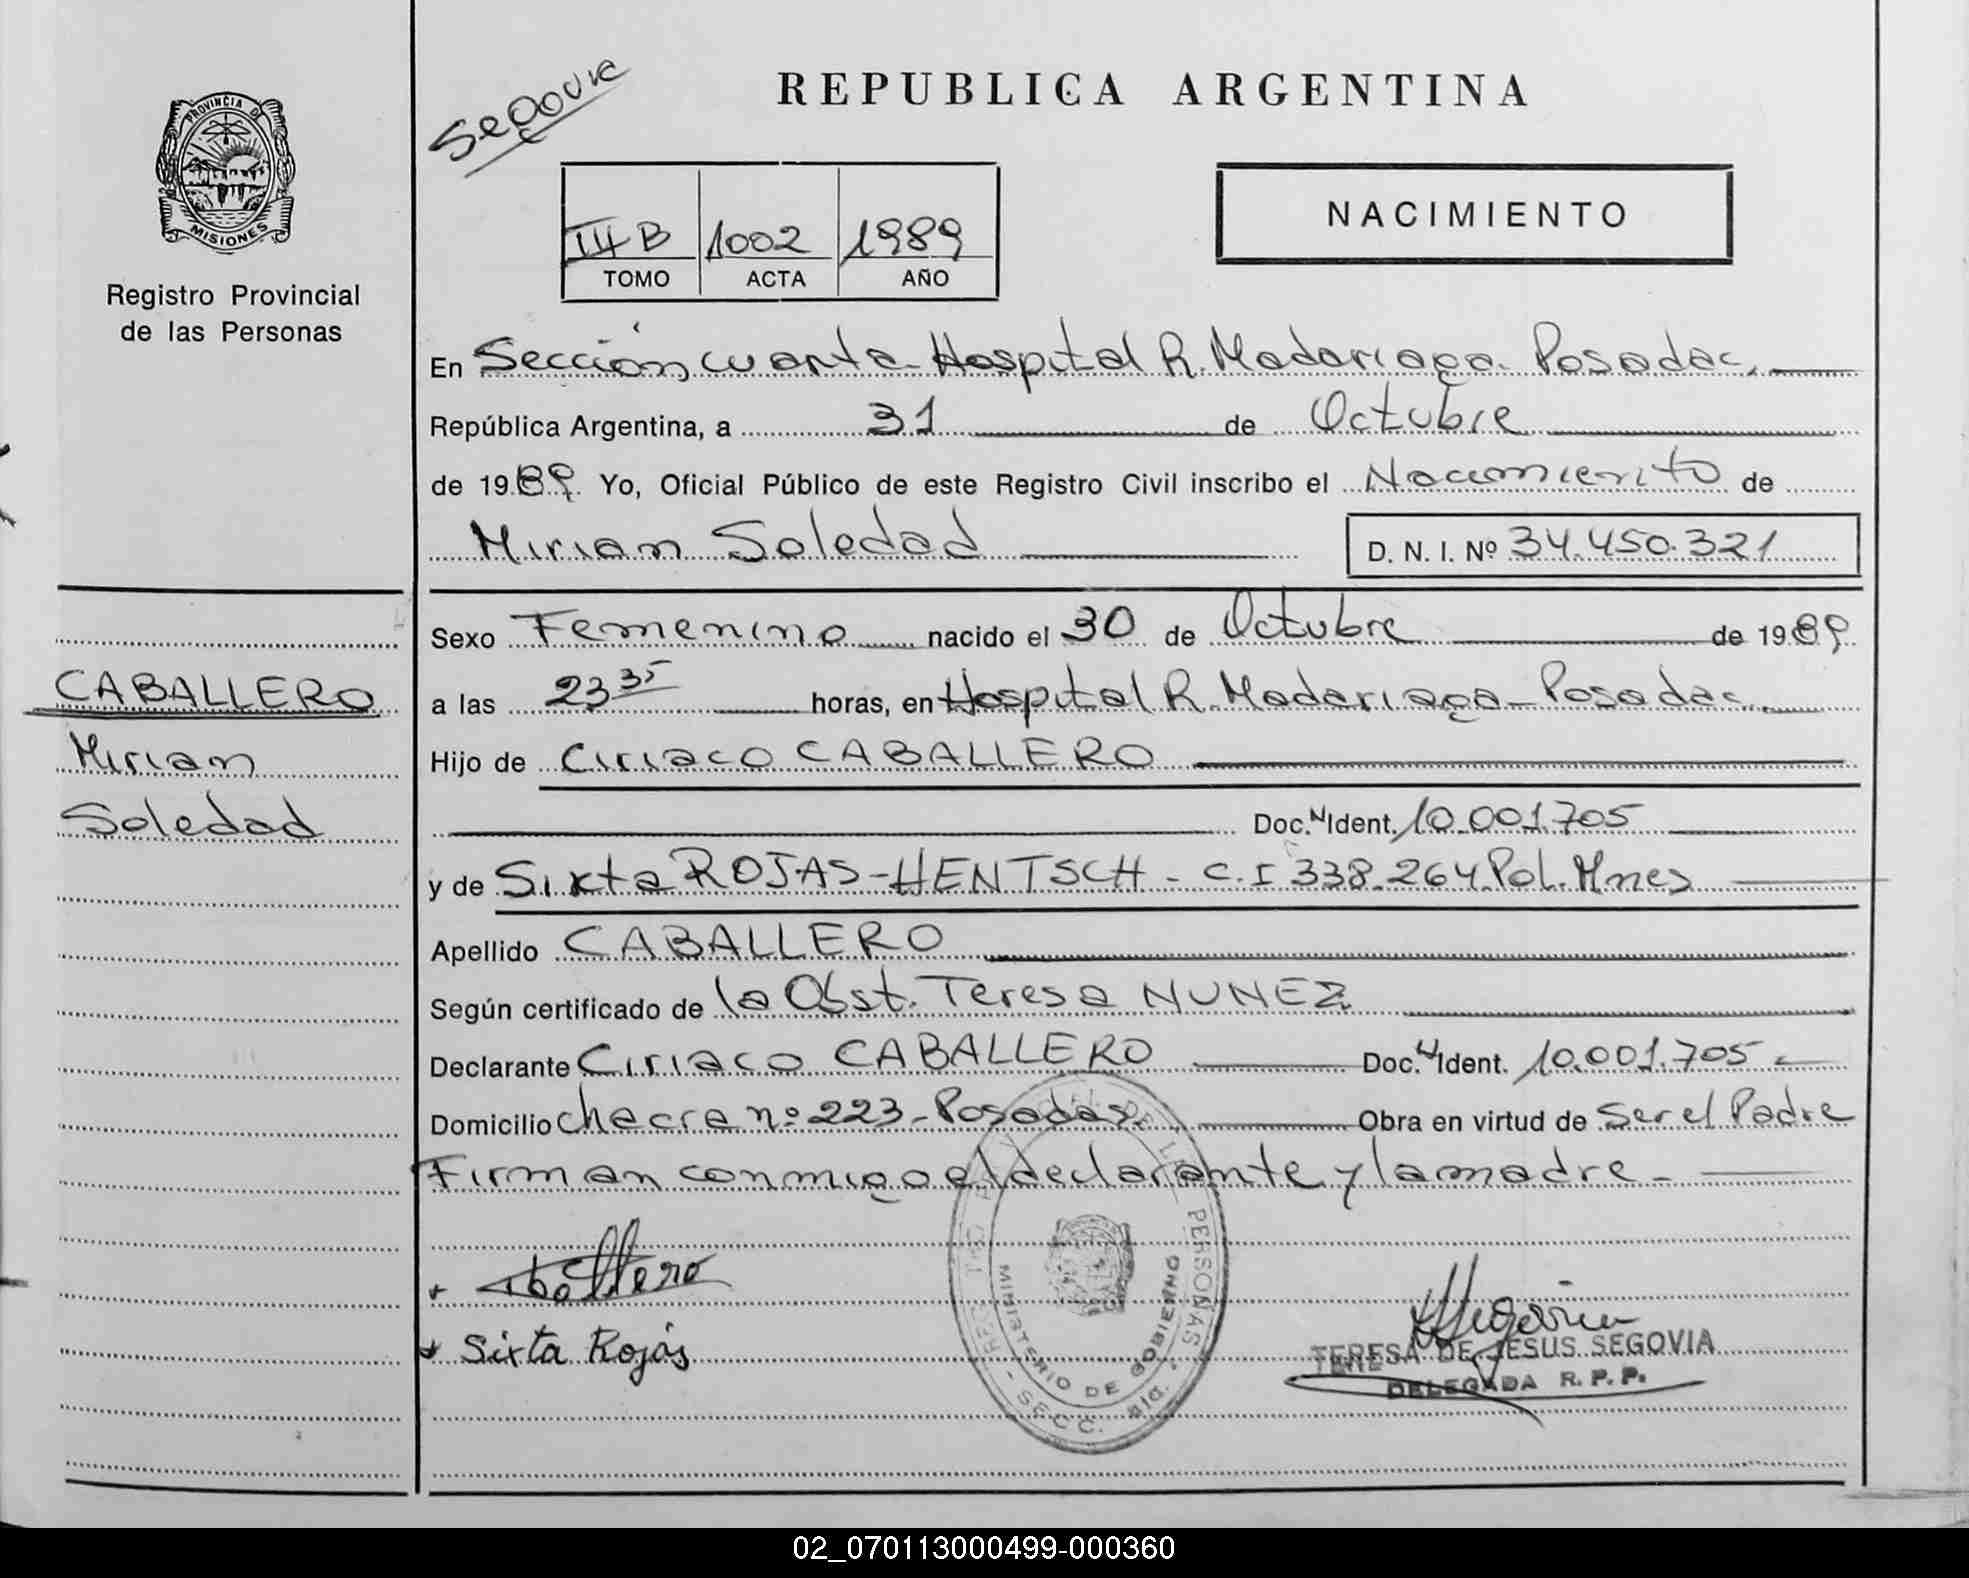 Segovia
REPUBLICA ARGENTINA
PROVINCIA DE
MISIONES
Registro Provincial
de las Personas
B 1002 1989
TOMO ACTA AÑO
NACIMIENTO
En Sección cuarta Hospital R. Madariaga. Posadas.
República Argentina, a 31 de Octubre
de 1989. Yo, Oficial Público de este Registro Civil inscribo el Nacimiento de
Mirian Soledad D. N. I. Nº 34.450.321
CABALLERO
Mirian
Soledad
Sexo Femenino nacido el 30 de Octubre de 1989.
a las 23 35 horas, en Hospital R. Madariaga - Posadas.
Hijo de Ciriaco CABALLERO
Doc. N Ident. 10.001.705
y de Sixta ROJAS-HENTSCH - C.I 338.264 Pol. Mnes
Apellido CABALLERO
Según certificado de la Obst. Teresa NUNEZ
Declarante Ciriaco CABALLERO Doc. N Ident. 10.001.705 -
Domicilio chacra nº 223 - Posadas. Obra en virtud de Ser el Padre
Firman conmigo el declarante y la madre -
Caballero
Sixta Rojas
PERSONAS
MINISTERIO DE GOBIERNO
SECC. 4ta.
Segovia
TERESA DE JESUS SEGOVIA
DELEGADA R. P. P.
02_070113000499-000360